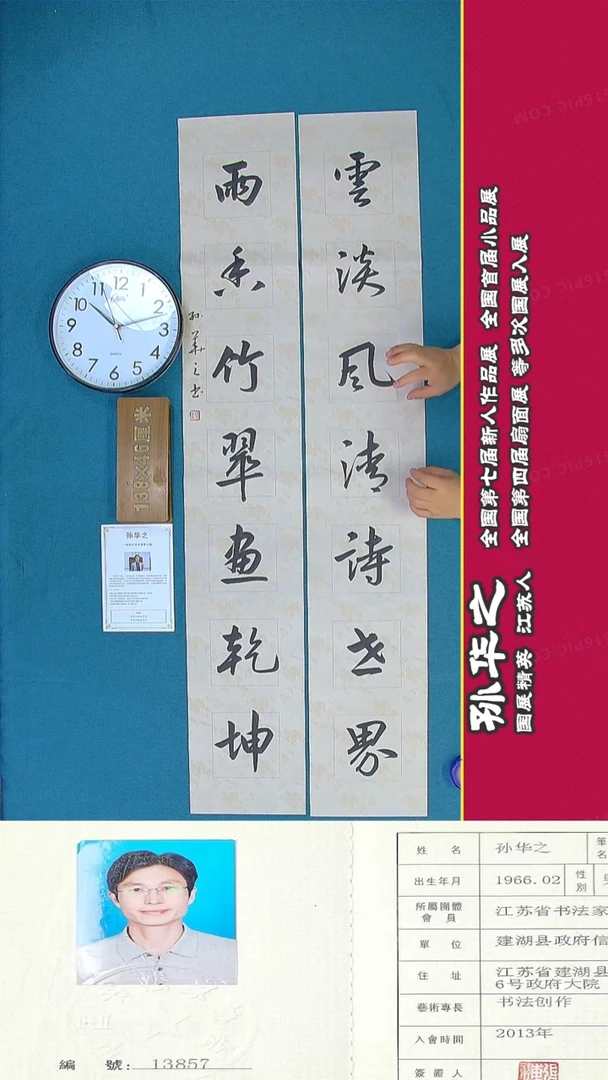 雲淡風清詩世界
雨香竹翠畫乾坤
孙華之书
12
1
2
3
4
5
6
7
8
9
10
11
138×46厘米
孙华之
孙华之
全国第七届新人作品展 全国首届小品展
国展精英 江苏人
全国第四届扇面展 等多次国展入展
姓 名 孙华之 筆名
出生年月 1966.02 性别
所屬團體 會員 江苏省书法家
單 位 建湖县政府信
住 址 江苏省建湖县
6号政府大院
藝術專長 书法创作
入會時間 2013年
簽證人
編 號: 13857